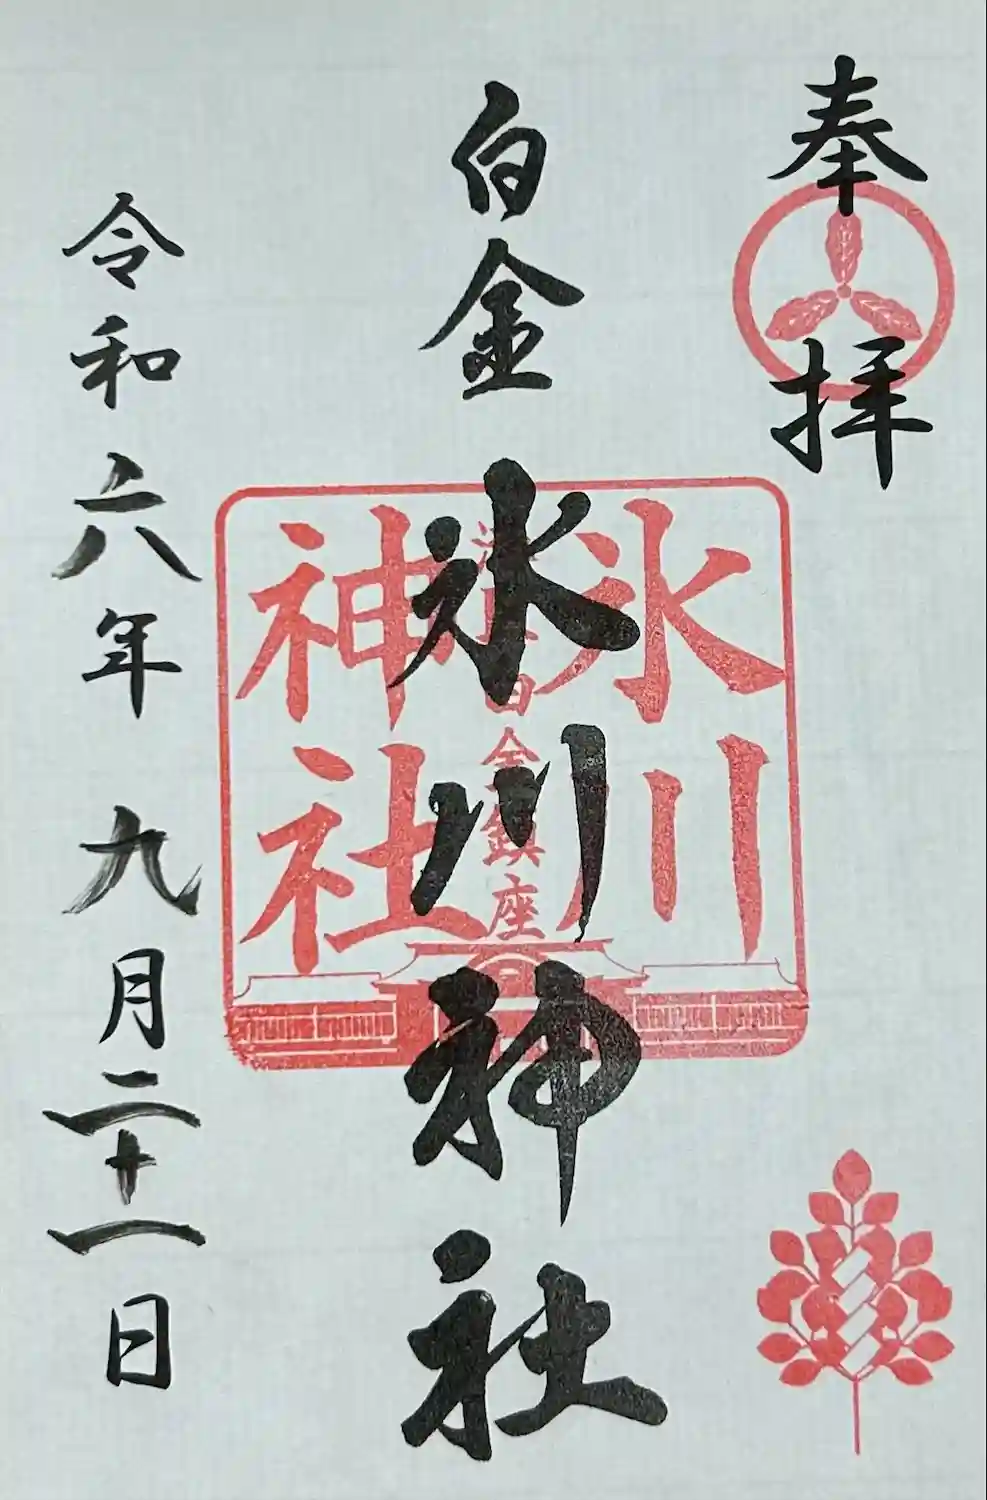 奉拝
白金 氷川神社
氷川
白金鎮座
神社
令和六年 九月二十一日